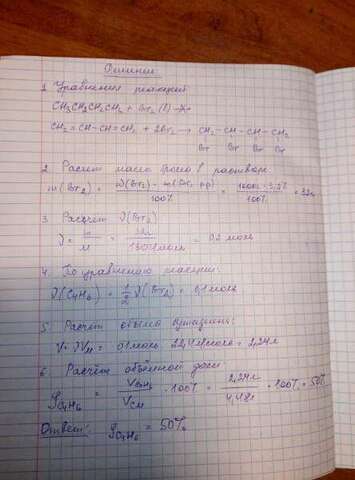 Решение
1 Уравнения реакций
CH3CH2CH2CH3 + Br2 (р)
CH2=CH-CH=CH2 + 2Br2 → CH2-CH-CH-CH2
Br Br Br Br
2 Расчет массы брома в растворе
m(Br2) = 100% = 100% = 32г
3 Расчёт ν(Br2)
ν = m/M = 32г = 0,2 моль
4. По уравнению реакции:
ν(C4H6) = 1/2 ν(Br2) = 0,1 моль
5. Расчёт объема бутадиена:
V = ν·Vм = 0,1 моль 22,4 л/моль = 2,24л
6 Расчёт объёмной доли
φC4H6 = VC4H6/Vсм · 100% = 2,24л/4,48л · 100% = 50%
Ответ: φC4H6 = 50%